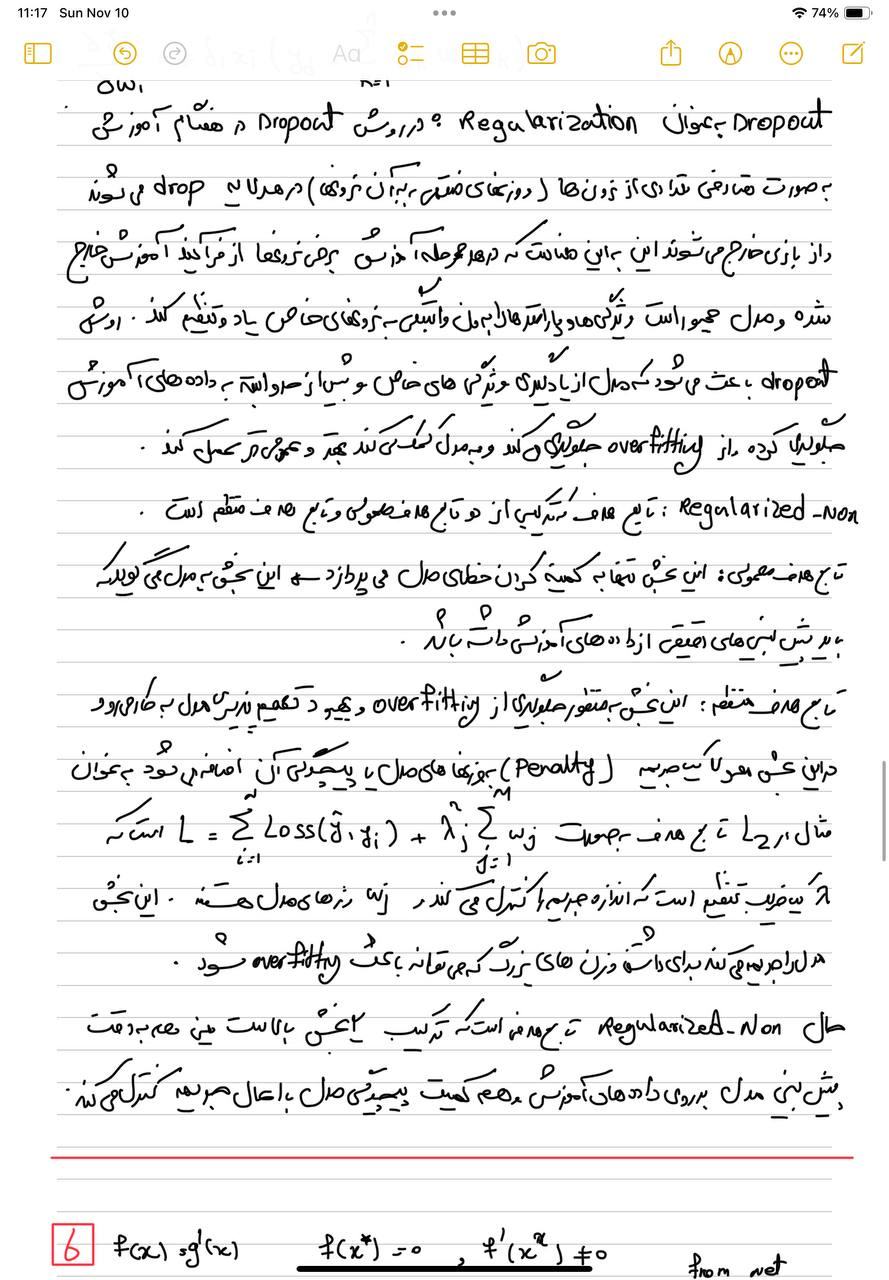 11:17 Sun Nov 10
74%
Aa
Dropout به عنوان Regularization : در روش Dropout در هنگام آموزش
به صورت تصادفی تعدادی از نرون ها ( وزنهای متصل به آن نرونها ) در هر لایه drop می شوند
و از بازی خارج می شوند این به این معناست که در هر مرحله آموزش برخی نرونها از فرآیند آموزش خارج
شده و مدل مجبور است ویژگی ها و پارامترها را بدون وابستگی به نرونهای خاص یاد و تنظیم کند . روش
dropout باعث می شود که مدل از یادگیری ویژگی های خاص و بیش از حد وابسته به داده های آموزش
جلوگیری کرده و از overfitting جلوگیری می کند و به مدل کمک می کند بهتر و عمومی تر عمل کند .
Regularized-Non : تابع هدف که ترکیبی از دو تابع هدف معمولی و تابع هدف منظم است .
تابع هدف معمولی : این بخش تنها به کمینه کردن خطای مدل می پردازد ← این بخش به مدل می گوید که
باید پیش بینی های دقیقی از داده های آموزش داشته باشد .
تابع هدف منظم : این بخش به منظور جلوگیری از overfitting و بهبود تعمیم پذیری مدل به کار می رود و
در این بخش معمولا یک جریمه (Penalty) به وزنها های مدل یا پیچیدگی آن اضافه می شود به عنوان
مثال در L2 تابع هدف به صورت L = Σ Loss(ŷ, yi) + λ Σ wj² است که
λ یک ضریب تنظیم است که اندازه جریمه را کنترل می کند و wj وزن های مدل هستند . این بخش
مدل را جریمه می کند برای داشتن وزن های بزرگ که می تواند باعث overfitting شود .
حال Regularized-Non تابع هدفی است که ترکیب 2 بخش بالاست یعنی هم به دقت
پیش بینی مدل بر روی داده های آموزش و هم کمیت پیچیدگی مدل با اعمال جریمه کنترل می کند .
6 f(x) = g'(x) f(x*) = 0 , f'(x*) ≠ 0
from net